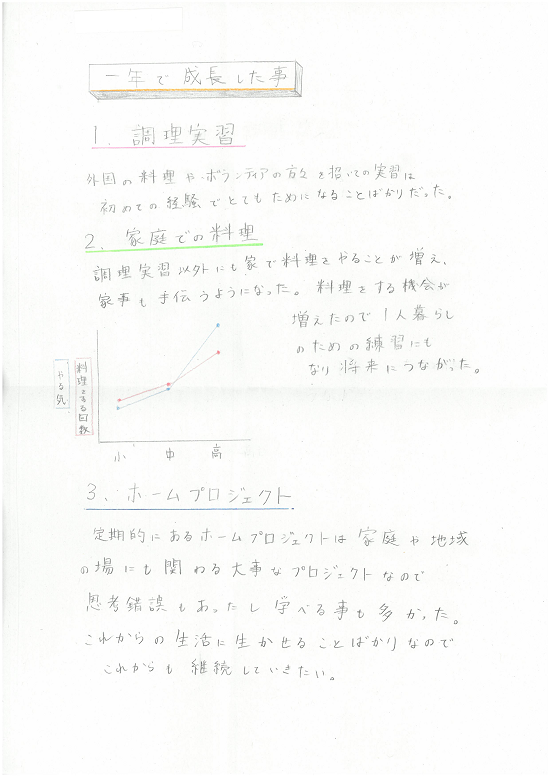 一年で成長した事
1. 調理実習
外国の料理やボランティアの方々を招いての実習は
初めての経験でとてもためになることばかりだった。
2. 家庭での料理
調理実習以外にも家で料理をやることが増え、
家事も手伝うようになった。料理をする機会が
増えたので1人暮らし
のための練習にも
なり将来につながった。
やる気
料理をする回数
小 中 高
3. ホームプロジェクト
定期的にあるホームプロジェクトは家庭や地域
の場にも関わる大事なプロジェクトなので
思考錯誤もあったし学べる事も多かった。
これからの生活に生かせることばかりなので
これからも継続していきたい。